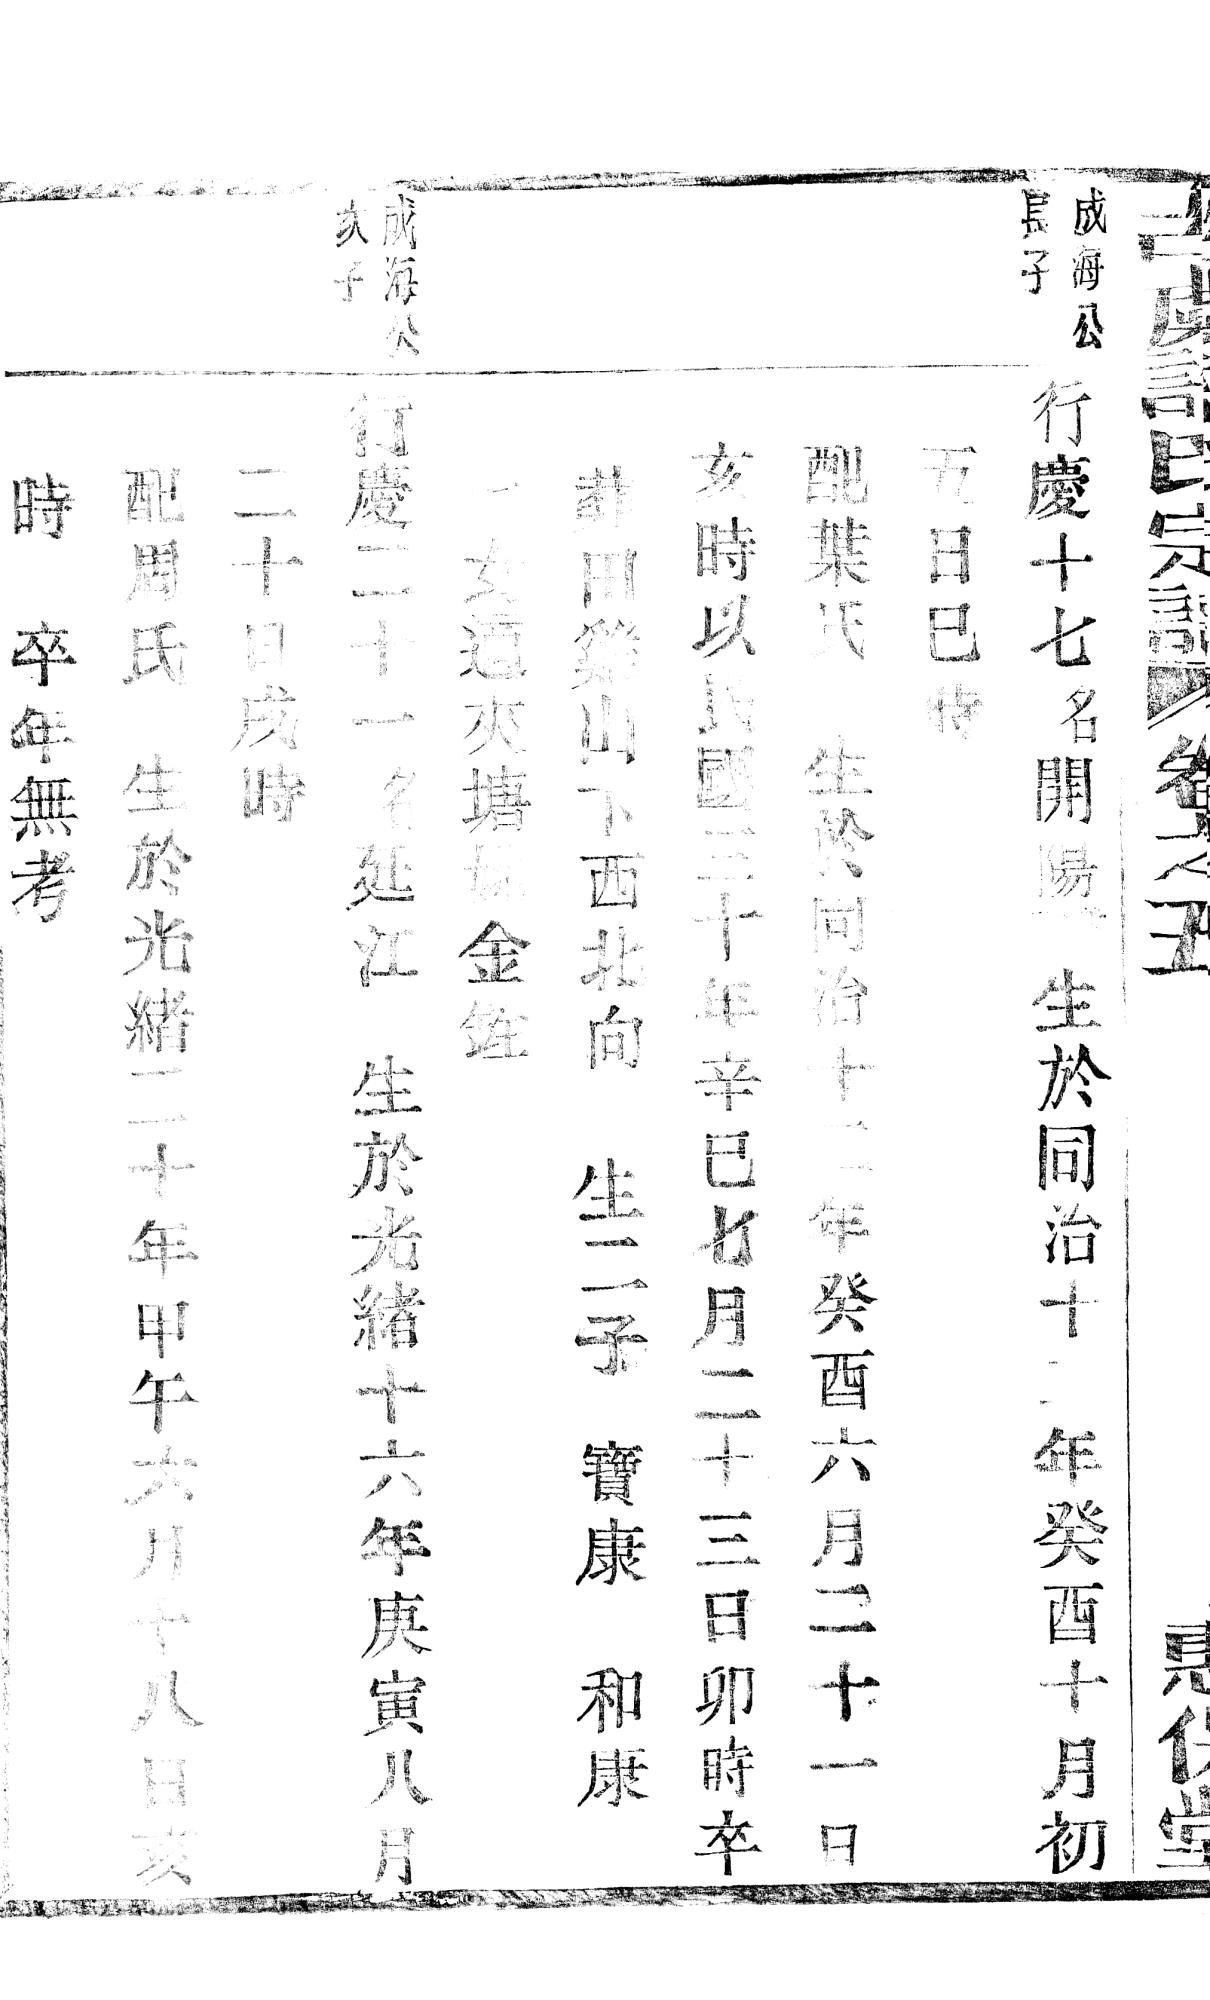 氏宗譜 卷之五
堂
成海公
長子
行慶十七名開陽 生於同治十二年癸酉十月初
五日巳時
配葉氏 生於同治十二年癸酉六月二十一日
亥時以民國三十年辛巳七月二十三日卯時卒
葬田雞山下西北向 生二子 寶康 和康
一女適夾塘 金銓
成海公
次子
行慶二十一名延江 生於光緒十六年庚寅八月
二十日戌時
配周氏 生於光緒二十年甲午六月十八日亥
時 卒年無考